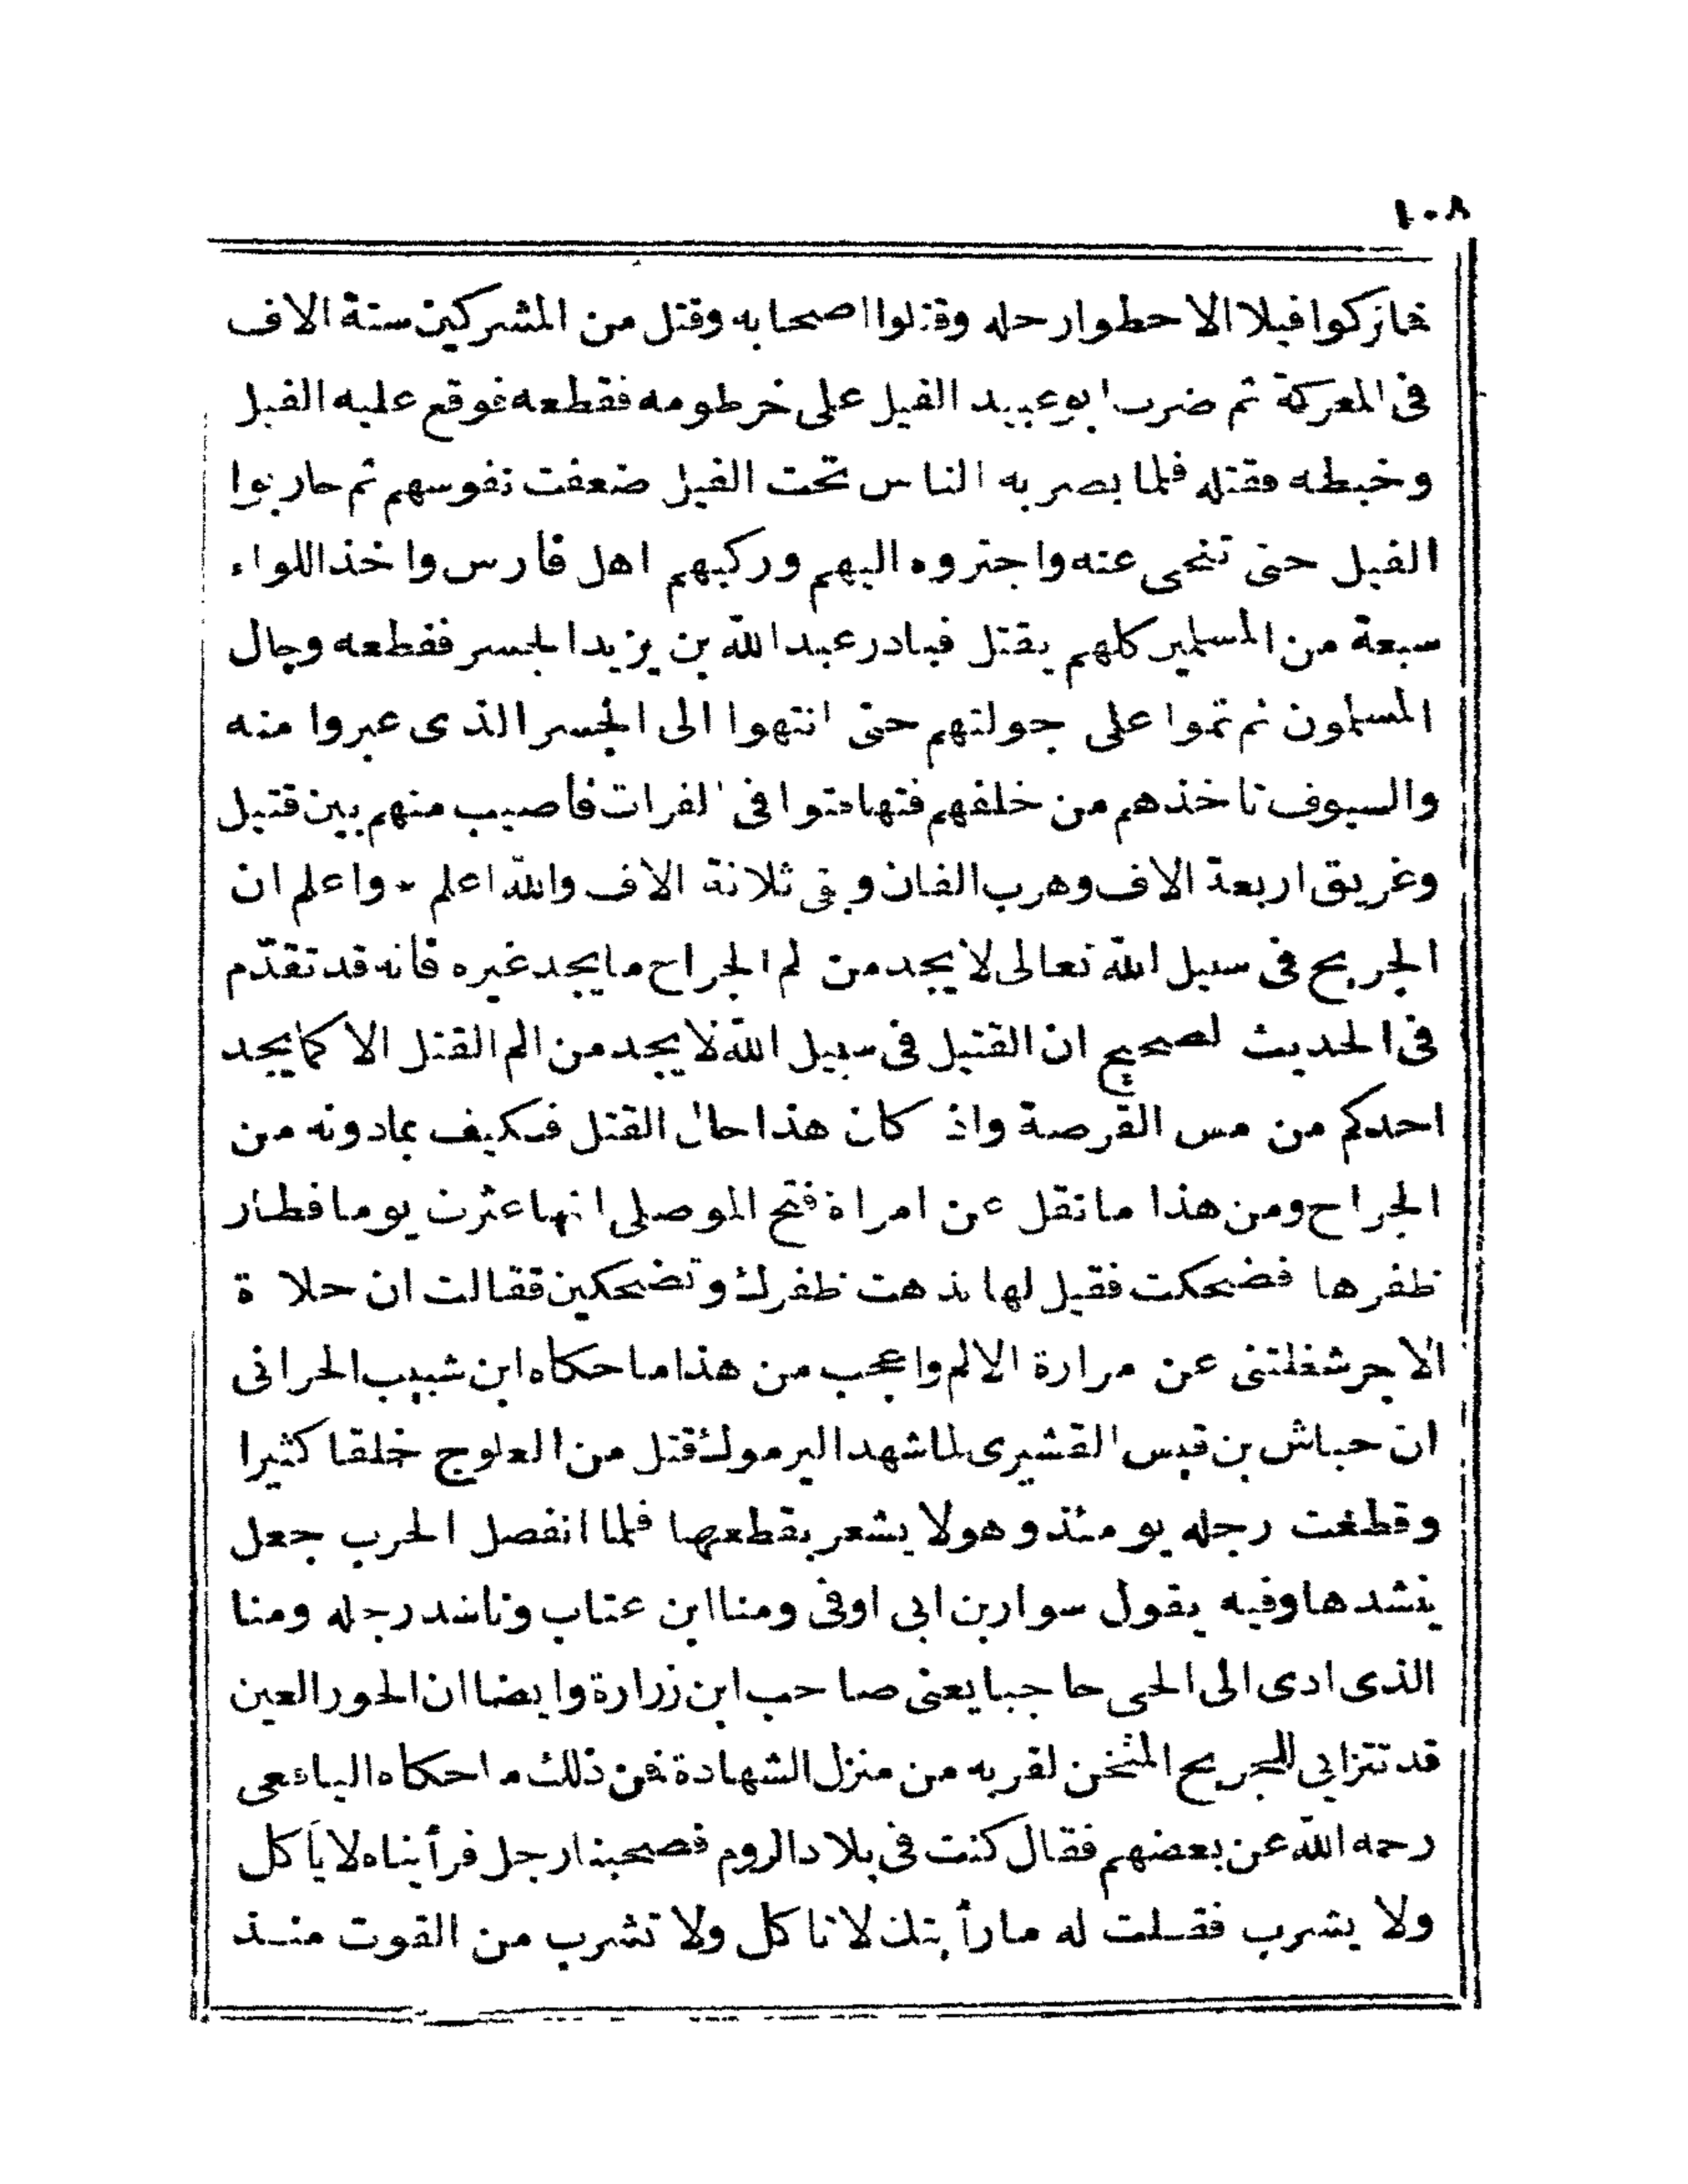 ١٠٨
فماتركوا فيلا الا حطوا رحله وقتلوا اصحابه وقتل من المشركين ستة الاف
فى المعركة ثم ضرب ابوعبيد الفيل على خرطومه فقطعه فوقع عليه الفيل
وخبطه فقتله فلما بصر به الناس تحت الفيل ضعفت نفوسهم ثم حاربوا
الفيل حتى تنحى عنه واجتروه اليهم وركبهم اهل فارس واخذ اللواء
سبعة من المسلمين كلهم يقتل فبادر عبد الله بن يزيد الجسر فقطعه وجال
المسلمون ثم تموا على جولتهم حتى انتهوا الى الجسر الذى عبروا منه
والسيوف تاخذهم من خلفهم فتهافتوا فى الفرات فأصيب منهم بين قتيل
وغريق اربعة الاف وهرب الفان وبقى ثلاثة الاف والله اعلم * واعلم ان
الجريح فى سبيل الله تعالى لا يجد من لم الجراح مايجد غيره فانه قد تقدّم
فى الحديث لصحيح ان القتيل فى سبيل الله لا يجد من الم القتل الا كما يجد
احدكم من مس القرصة واذ كان هذا حال القتل فكيف بمادونه من
الجراح ومن هذا مانقل عن امراة فتح الموصلى انها عثرت يوما فطار
ظفرها فضحكت فقيل لها يذهت ظفرك وتضحكين فقالت ان حلاة
الاجر شغلتنى عن مرارة الالم واعجب من هذا ما حكاه ابن شبيب الحرانى
ان حباش بن قيس القشيرى لما شهد اليرموك قتل من العلوج خلقا كثيرا
وقطعت رجله يومئذ وهو لا يشعر بقطعها فلما انفصل الحرب جعل
ينشدها وفيه يقول سوار بن ابى اوفى ومنا ابن عتاب وناشد رجله ومنا
الذى ادى الى الحى حاجبا يعنى صاحب ابن زرارة وايضا ان الحور العين
قد تتزايي للجريح المثخن لقربه من منزل الشهادة فمن ذلك ما حكاه اليافعى
رحمه الله عن بعضهم فقال كنت فى بلاد الروم فصحبنا رجل فرأيناه لا يأكل
ولا يشرب فقلت له مارأيتك لا تاكل ولا تشرب من القوت منذ